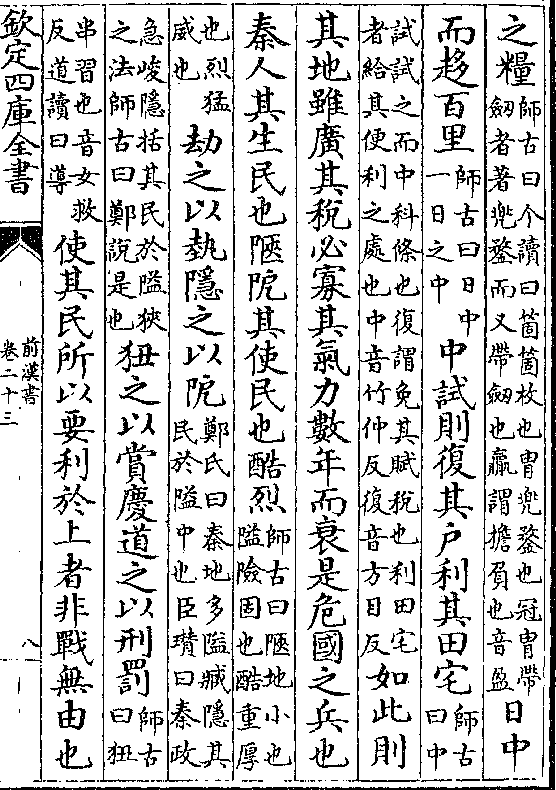 之糧師古曰个讀曰箇箇枚也胄兜鍪也冠胄帶劔者著兜鍪而又帶劔也贏謂擔負也音盈日中
而趍百里師古曰日中一日之中中試則復其户利其田宅師古曰中
試試之而中科條也復謂免其賦稅也利田宅者給其便利之處也中音竹仲反復音方目反如此則
其地雖廣其稅必寡其氣力數年而衰是危國之兵也
秦人其生民也陿阸其使民也酷烈師古曰陿地小也隘險固也酷重厚
也烈猛威也劫之以埶隱之以阸鄭氏曰秦地多隘臧隱其民於隘中也臣瓚曰秦政
急峻隱括其民於隘狹之法師古曰鄭說是也狃之以賞慶道之以刑罰師古曰狃
串習也音女救反道讀曰導使其民所以要利於上者非戰無由也
欽定四庫全書
前漢書
卷二十三
八